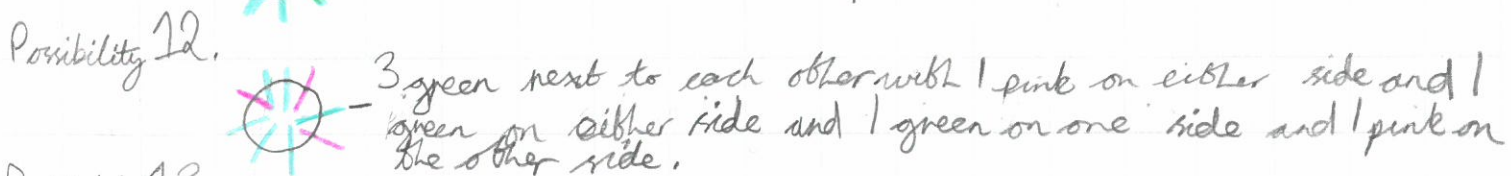 Possibility 12.
3 green next to each other with 1 pink on either side and 1
green on either side and 1 green on one side and 1 pink on
the other side.